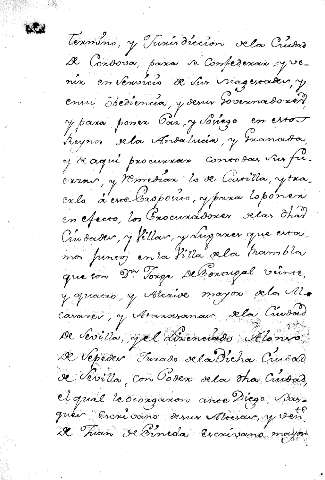 termino, y Jurisdiccion de la Ciudad
de Cordova, para se confederar, y ve-
nir en Servicio de Sus Magestades, y
en su obediencia, y de sus Governadores
y para poner Paz, y Sosiego en estos
Reynos de la Andalucia, y Granada,
y de aqui procurrar con todas sus fu-
erzas, y remediar lo de Castilla, y tra-
erlo à este Proposito, y para lo poner
en efecto, los Procuradores de las dhas
Ciudades, y Villas, y Lugares que esta-
ban juntos en la Villa de la Rambla
que son Dn. Jorge de Portugal veinte,
y quatro, y Alcaide mayor de los Al-
cazares, y Atarazanas de la Ciudad
de Sevilla, y el Licenciado Alonso
de Sepedes Jurado de la Dicha Ciudad
de Sevilla, con Poder de la dha Ciudad,
el qual le otorgaron ante Diego Vas-
ques escrivano de sus Altezas, y
de Juan de Pineda escrivano mayor